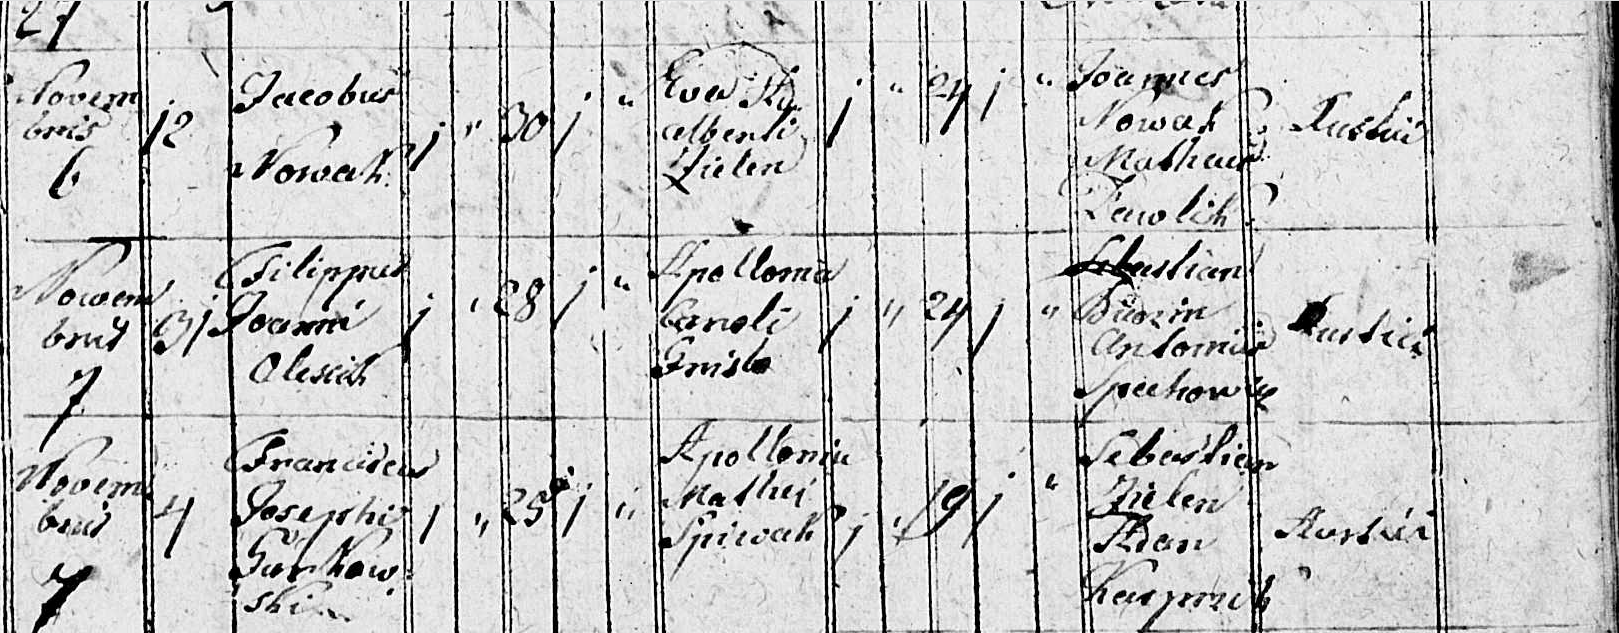 27
Novem
bris
6
12
Jacobus
Nowak
j " 30 j "
Eva
Alberti
Zielen
j " 24 j "
Joannes
Nowak
Matheus
Pawlik
Rustici
Novem
bris
7
31
Filippus
Joanni
Olesiak
j " 28 j "
Apollonia
Caroli
j " 24 j "
Sebastian
Antonius
Rustici
Novem
bris
7
4
Franciscus
Josephi
Gurkow
ski
j " 25 j "
Apollonia
Mathei
Spiwak
j " 19 j "
Sebastian
Zielen
Adam
Kasprzik
Rustici